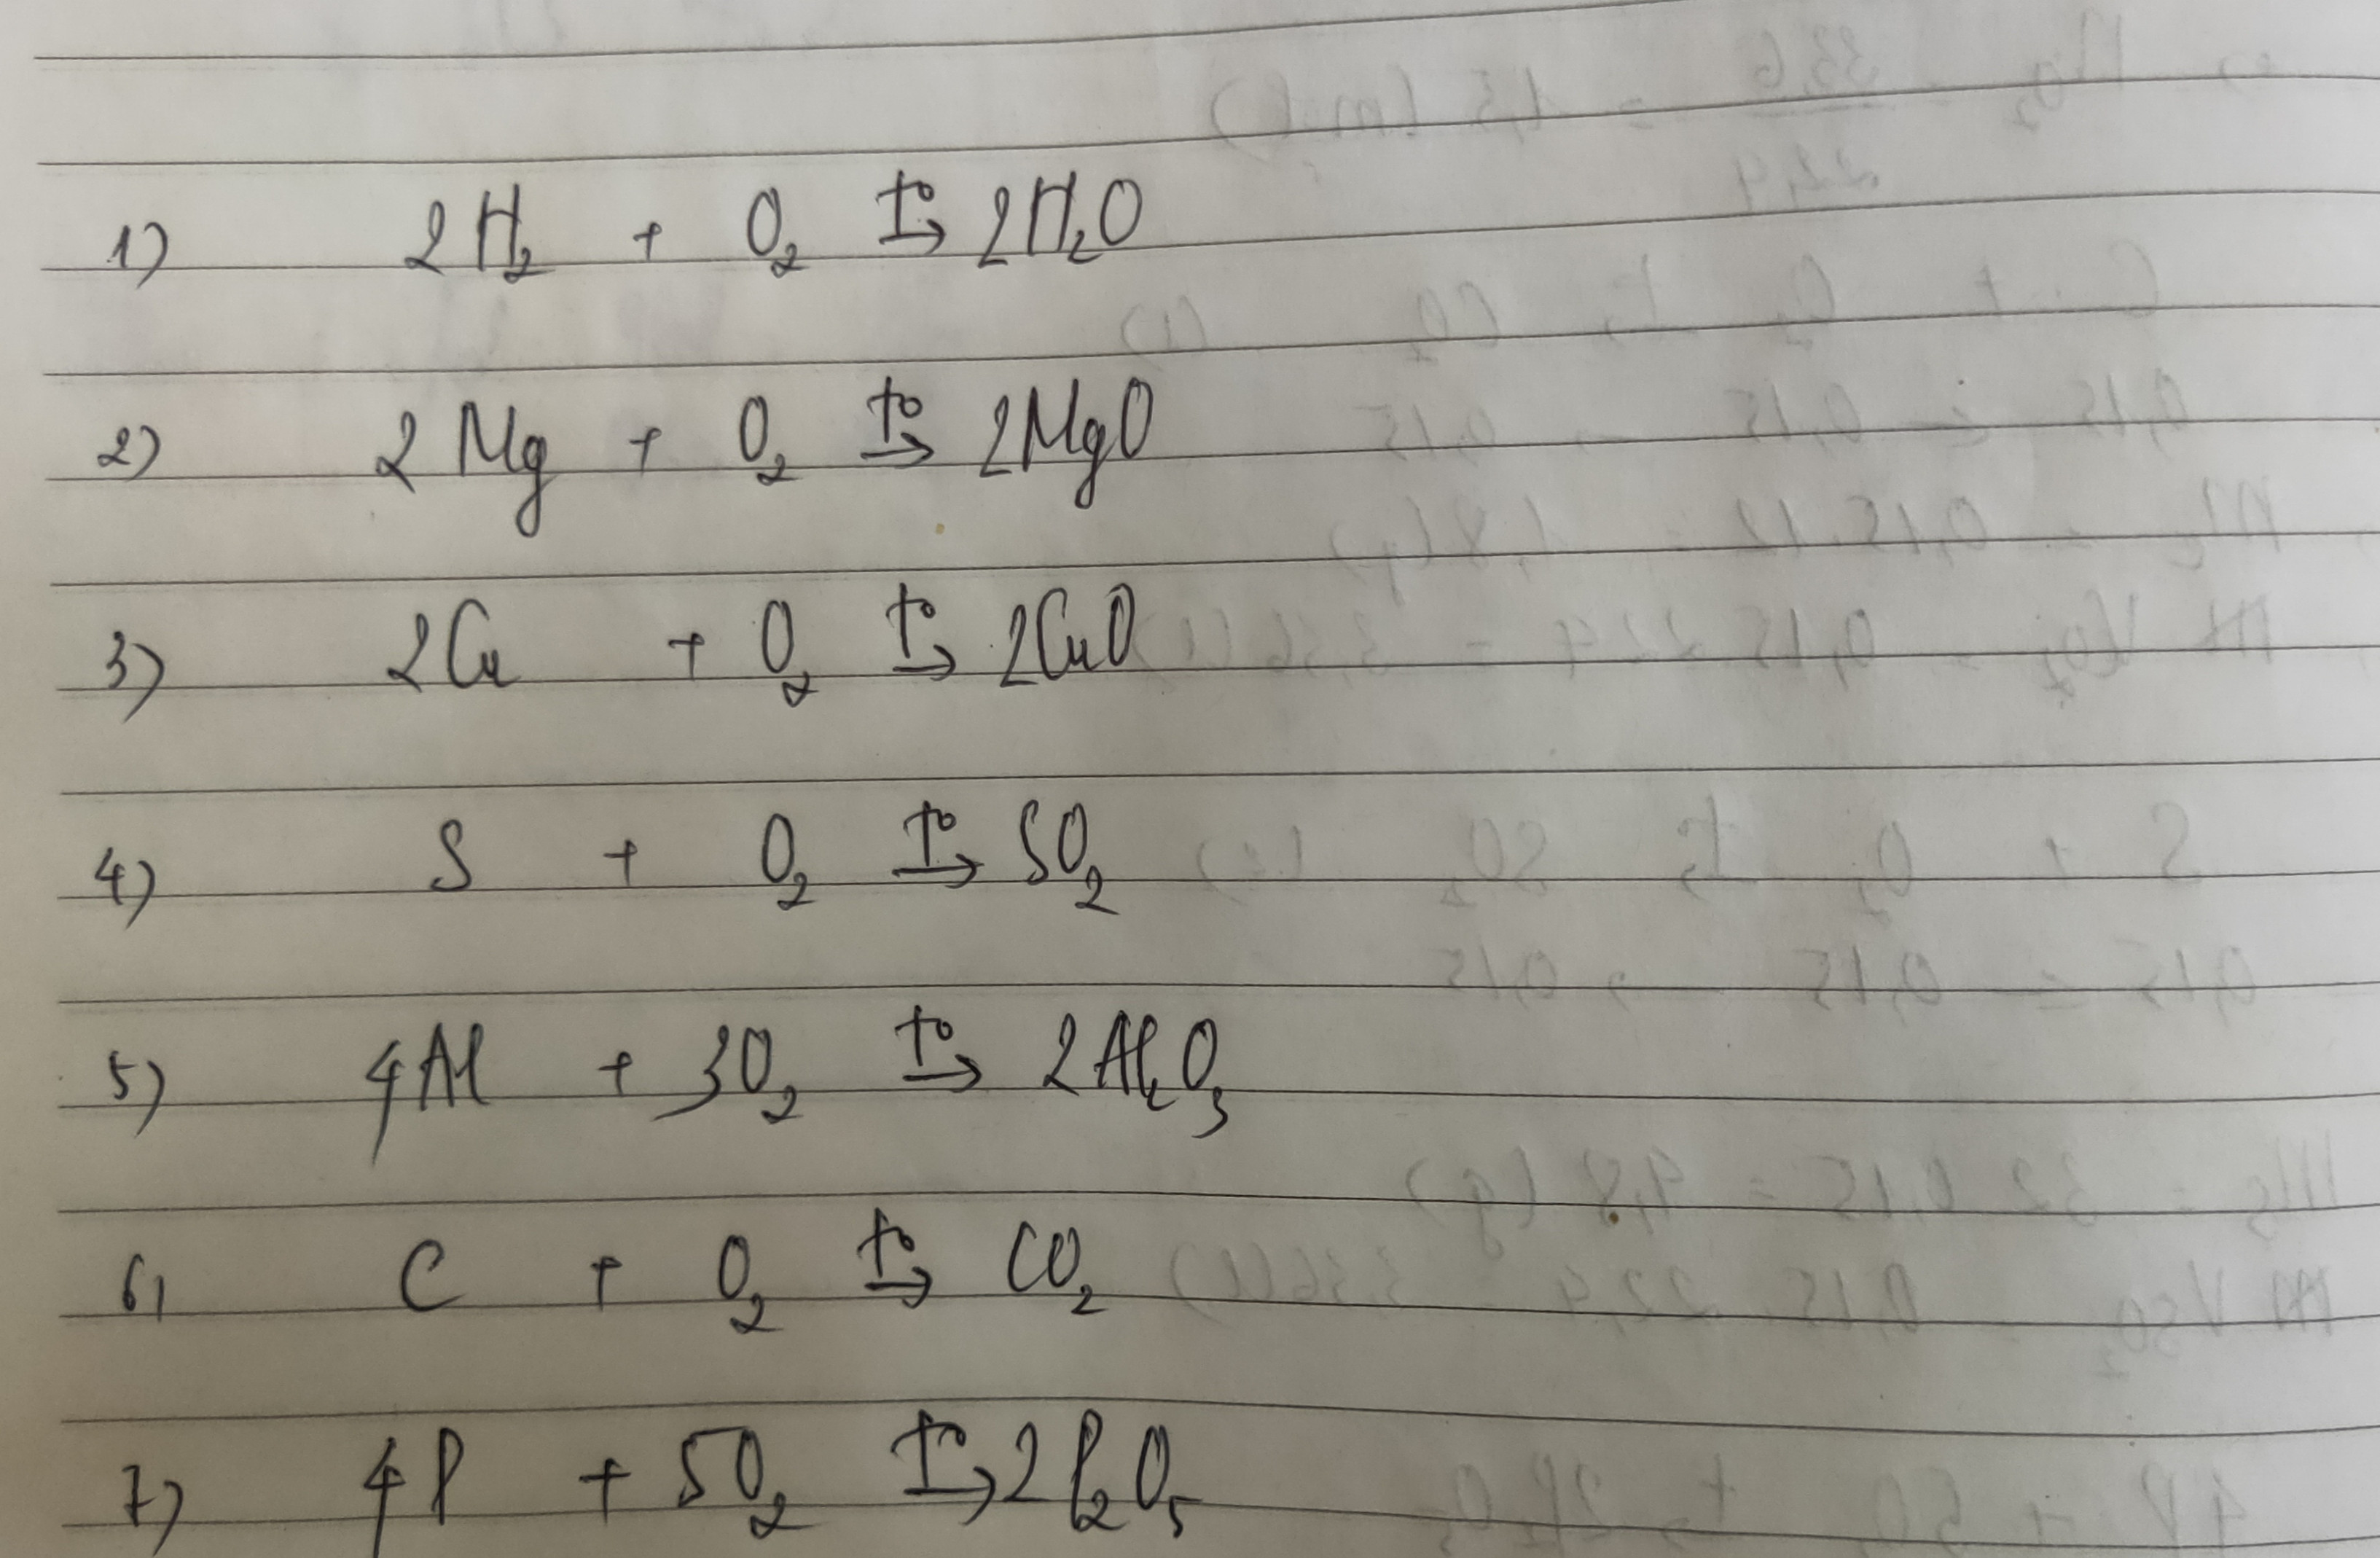 1) 2H₂ + O₂ t°→ 2H₂O
2) 2Mg + O₂ t°→ 2MgO
3) 2Cu + O₂ t°→ 2CuO
4) S + O₂ t°→ SO₂
5) 4Al + 3O₂ t°→ 2Al₂O₃
6) C + O₂ t°→ CO₂
7) 4P + 5O₂ t°→ 2P₂O₅